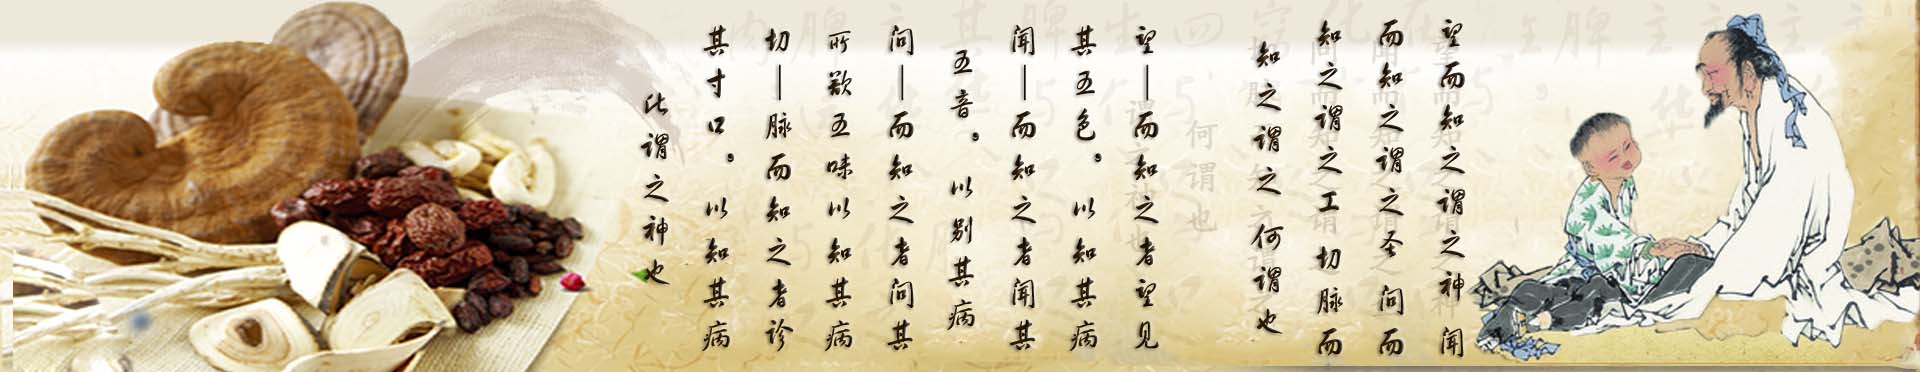 望而知之谓之神 闻
而知之谓之圣 问而
知之谓之工 切脉而
知之谓之何谓也
望—而知之者望见
其五色。以知其病
闻—而知之者闻其
五音。以别其病
问—而知之者问其
所欲五味以知其病
切—脉而知之者诊
其寸口。以知其病
此谓之神也